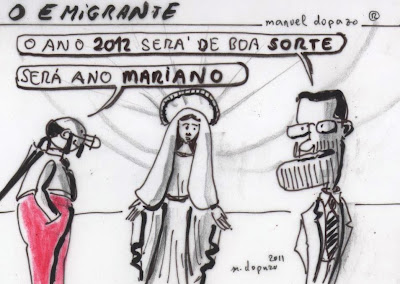 O EMIGRANTE
manuel dopazo ®
O ANO 2012 SERA' DE BOA SORTE
SERÁ ANO MARIANO
2011
m. dopazo